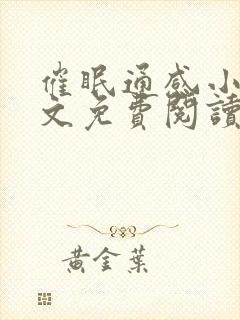 催眠通感小
文免費閱讀
黃金葉